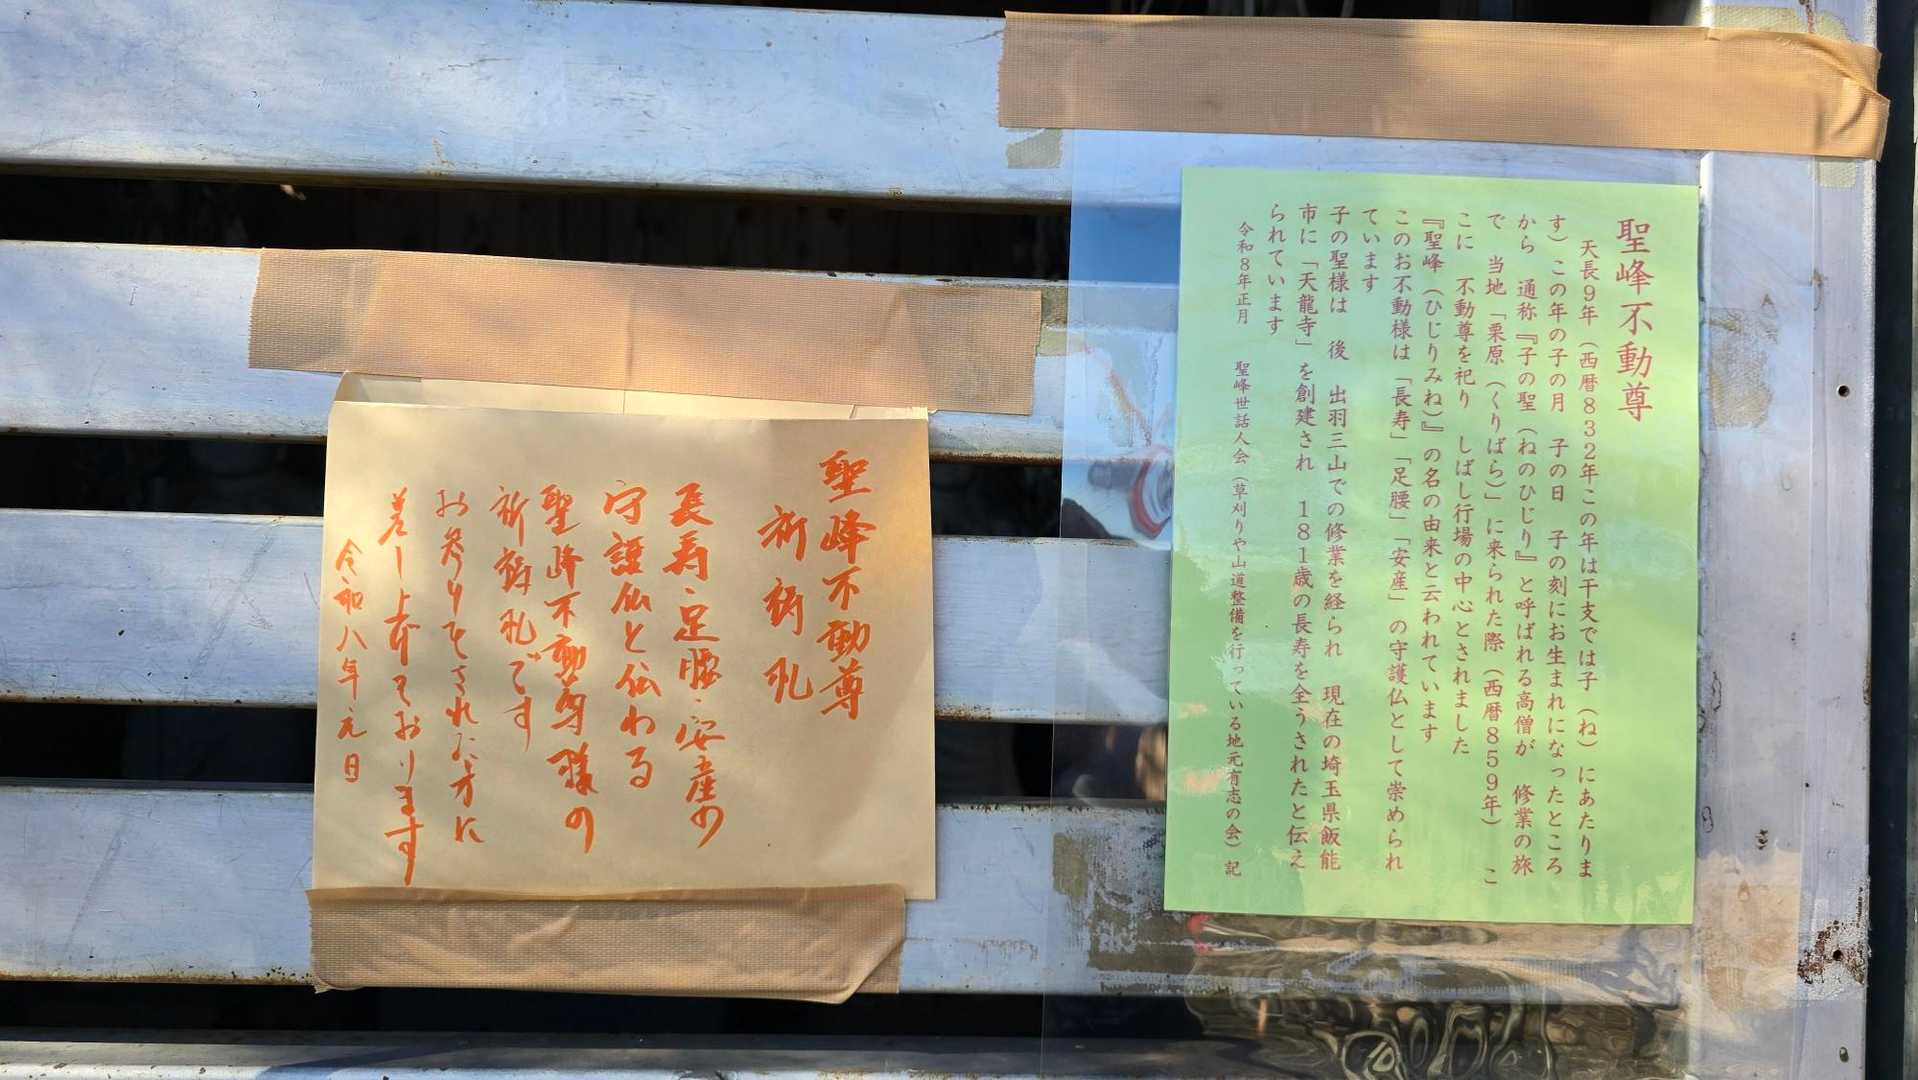 聖峰不動尊
天長9年(西暦832年この年は干支では子(ね)にあたりま
す)この年の子の月 子の日 子の刻にお生まれになったところ
から 通称『子の聖(ねのひじり)』と呼ばれる高僧が 修業の旅
で 当地「栗原(くりばら)」に来られた際(西暦859年) こ
こに 不動尊を祀り しばし行場の中心とされました
『聖峰(ひじりみね)』の名の由来と云われています
このお不動様は「長寿」「足腰」「安産」の守護仏として崇められ
ています
子の聖様は 後 出羽三山での修業を経られ 現在の埼玉県飯能
市に「天龍寺」を創建され 181歳の長寿を全うされたと伝え
られています
令和8年正月 聖峰世話人会(草刈りや山道整備を行っている地元有志の会)記
聖峰不動尊
祈祷札
長寿・足腰・安産の
守護仏と伝わる
聖峰不動尊様の
祈祷札です
お参りをされた方に
差し上げております
令和八年元日